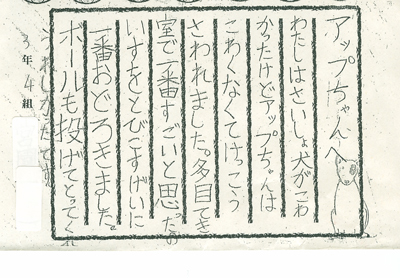 アップちゃんへ
わたしはさいしょ犬がこわ
かったけどアップちゃんは
こわくなくてけっこう
さわれました。多目てき
室で一番すごいと思ったの
いすをとびこすげいに
一番おどろきました。
ボールも投げてとってくれ
うれしかったです。
3年4組